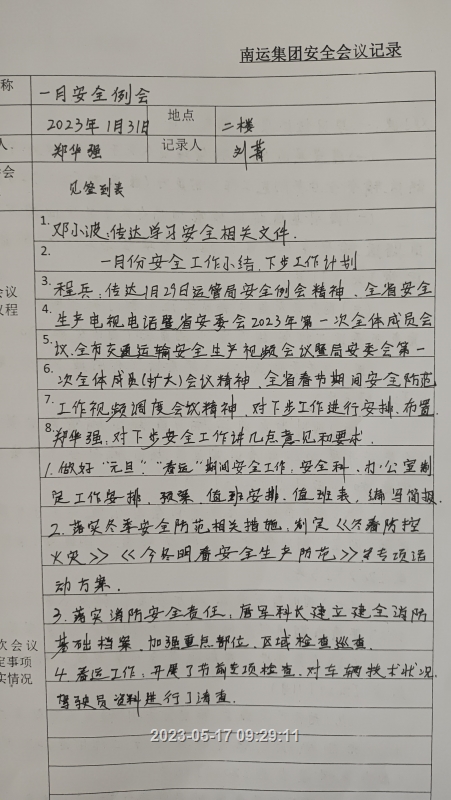 南运集团安全会议记录
称 一月安全例会
2023年1月31日 地点 二楼
人 郑华强 记录人 刘菁
会 见签到表
1. 邓小波:传达学习安全相关文件.
2. 一月份安全工作小结、下步工作计划
3. 程兵:传达1月29日运管局安全例会精神、全省安全
会议 4. 生产电视电话暨省安委会2023年第一次全体成员会
议程 5. 议、全市交通运输安全生产视频会议暨局安委会第一
6. 次全体成员(扩大)会议精神、全省春节期间安全防范
7. 工作视频调度会议精神、对下步工作进行安排、布置.
8. 郑华强:对下步安全工作讲几点意见和要求.
1. 做好"元旦""春运"期间安全工作,安全科、办公室制
定工作安排、预案、值班安排、值班表,编写简报.
2. 落实冬季安全防范相关措施,制定《冬春防控
火灾》《今冬明春安全生产防范》等专项活
动方案.
3. 落实消防安全责任,唐军科长建立建全消防
次会议 基础档案、加强重点部位、区域检查巡查.
定事项 4. 春运工作:开展了节前专项检查、对车辆技术状况、
实情况 驾驶员资料进行了清查.
2023-05-17 09:29:11